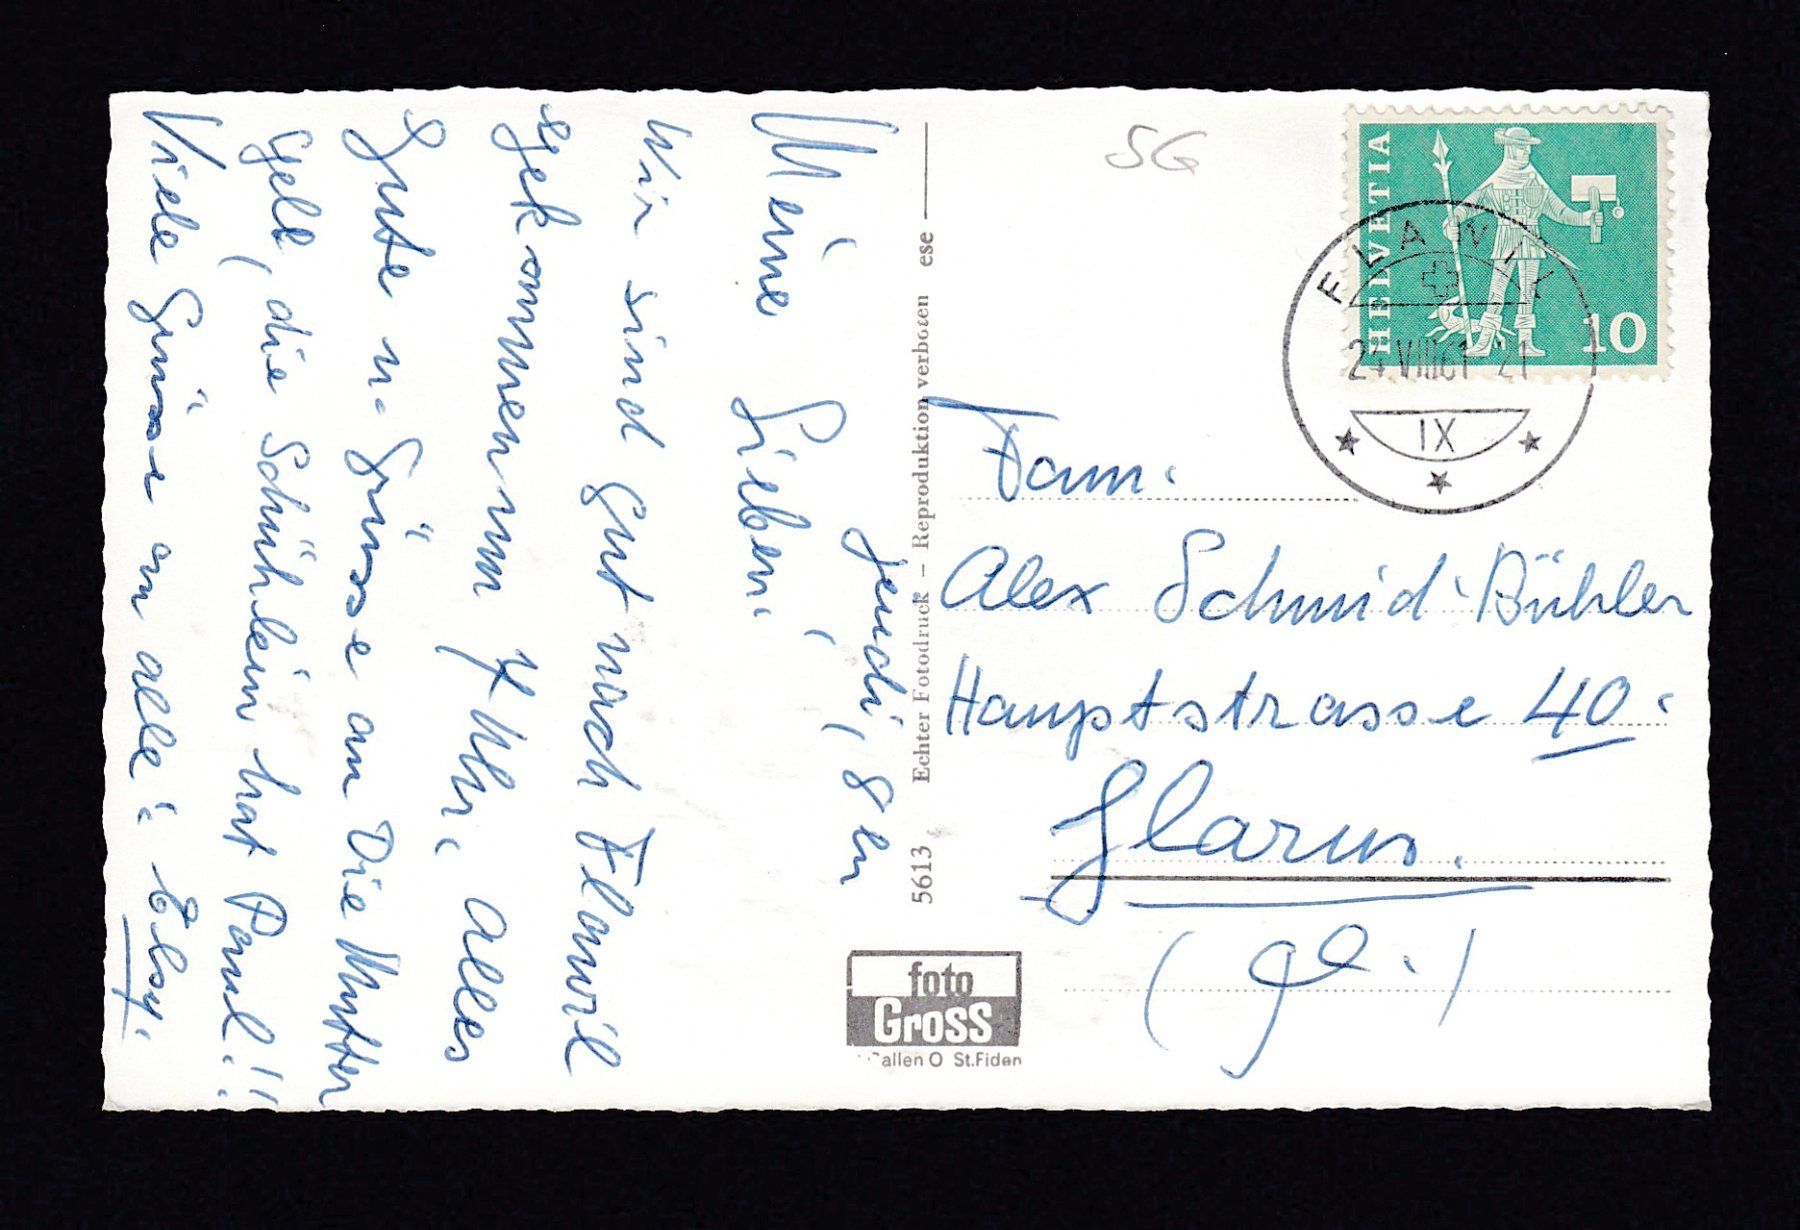 Jeudi, 8 Uhr
Meine Lieben!
Wir sind gut nach Flawil
gekommen um 7 Uhr. Alles
Gute u. Grüsse an die Mutter
gell, die Schühlein hat Paul!!
Viele Grüsse an alle: Elsy.
5613 Echter Fotodruck – Reproduktion verboten ese
foto
Gross
Gallen O St.Fiden
SG
HELVETIA
10
FLAWIL
24.VIII61 21
IX
Fam.
Alex Schmid-Bühler
Hauptstrasse 40.
Glarus.
(Gl.)